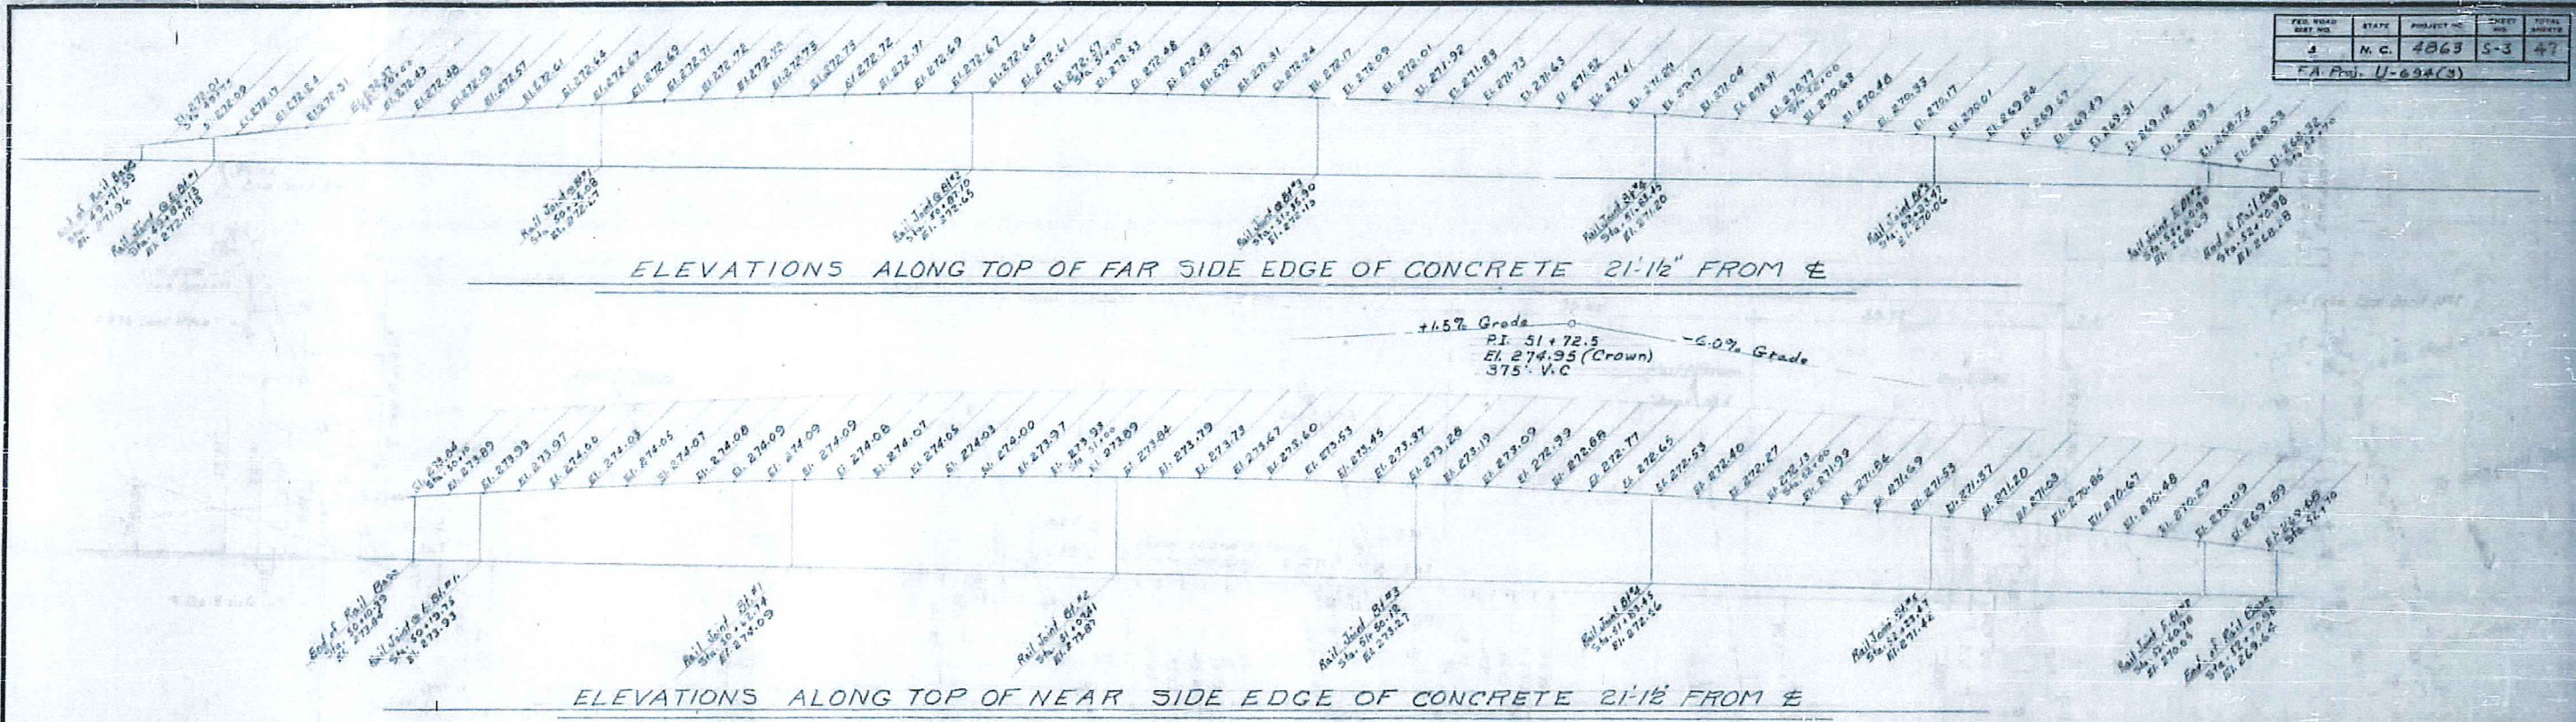 FED. ROAD DIST NO. STATE PROJECT NO. SHEET NO. TOTAL SHEETS
3 N.C. 4863 S-3 47
F.A. Proj. U-694(3)
El. 272.01
El. 272.09
El. 272.17
El. 272.24
El. 272.31
El. 272.43
El. 272.48
El. 272.53
El. 272.57
El. 272.61
El. 272.64
El. 272.67
El. 272.69
El. 272.71
El. 272.72
El. 272.73
El. 272.73
El. 272.73
El. 272.72
El. 272.71
El. 272.69
El. 272.67
El. 272.64
El. 272.61
El. 272.57
Sta. 51+00
El. 272.53
El. 272.48
El. 272.43
El. 272.37
El. 272.31
El. 272.24
El. 272.17
El. 272.09
El. 272.01
El. 271.92
El. 271.83
El. 271.73
El. 271.63
El. 271.52
El. 271.41
El. 271.29
El. 271.17
El. 271.04
El. 270.77
Sta. 52+00
El. 270.63
El. 270.48
El. 270.33
El. 270.17
El. 270.01
El. 269.84
El. 269.67
El. 269.49
El. 269.31
El. 269.12
El. 268.93
El. 268.73
El. 268.53
El. 268.32
Sta. 52+70
End of Rail Base
Sta. 49+71.39
El. 271.96
Rail Joint @ E. Bt. #1
Rail Joint @ Bt #1
El. 272.67
Rail Joint @ Bt #2
Sta. 50+87.10
El. 272.65
Rail Joint @ Bt #3
Sta. 51+35.90
Rail Joint Bt #4
Sta. 51+83.45
El. 271.20
Rail Joint Bt #5
Sta. 52+23.47
El. 270.06
Rail Joint E. Bt #2
Sta. 52+60.98
End of Rail Base
Sta. 52+70.98
El. 268.28
ELEVATIONS ALONG TOP OF FAR SIDE EDGE OF CONCRETE 21'-1½" FROM ℄
+1.5% Grade
-6.0% Grade
P.I. 51+72.5
El. 274.95 (Crown)
375' V.C
El. 273.84
El. 273.89
El. 273.93
El. 273.97
El. 274.00
El. 274.03
El. 274.05
El. 274.07
El. 274.08
El. 274.09
El. 274.09
El. 274.09
El. 274.08
El. 274.07
El. 274.05
El. 274.03
El. 274.00
El. 273.97
El. 273.93
Sta. 51+00
El. 273.89
El. 273.84
El. 273.79
El. 273.73
El. 273.67
El. 273.60
El. 273.53
El. 273.45
El. 273.37
El. 273.28
El. 273.19
El. 273.09
El. 272.99
El. 272.88
El. 272.77
El. 272.65
El. 272.53
El. 272.40
El. 272.27
El. 272.13
Sta. 52+00
El. 271.99
El. 271.84
El. 271.69
El. 271.53
El. 271.37
El. 271.20
El. 271.03
El. 270.85
El. 270.67
El. 270.48
El. 270.29
El. 270.09
El. 269.89
El. 269.68
Sta. 52+70
End of Rail Base
Sta. 50+10.39
El. 273.84
Rail Joint @ E. Bt. #1
Sta. 50+19.75
El. 273.93
Rail Joint Bt. #1
Sta. 50+62.74
El. 274.09
Rail Joint Bt. #2
Sta. 51+07.41
El. 273.87
Rail Joint Bt #3
Sta. 51+50.12
El. 273.27
Rail Joint Bt #4
Sta. 51+83.45
El. 272.56
Rail Joint Bt #5
Sta. 52+23.47
El. 271.42
Rail Joint E. Bt #2
Sta. 52+60.98
El. 270.05
End of Rail Base
Sta. 52+70.98
El. 269.64
ELEVATIONS ALONG TOP OF NEAR SIDE EDGE OF CONCRETE 21'-1½" FROM ℄